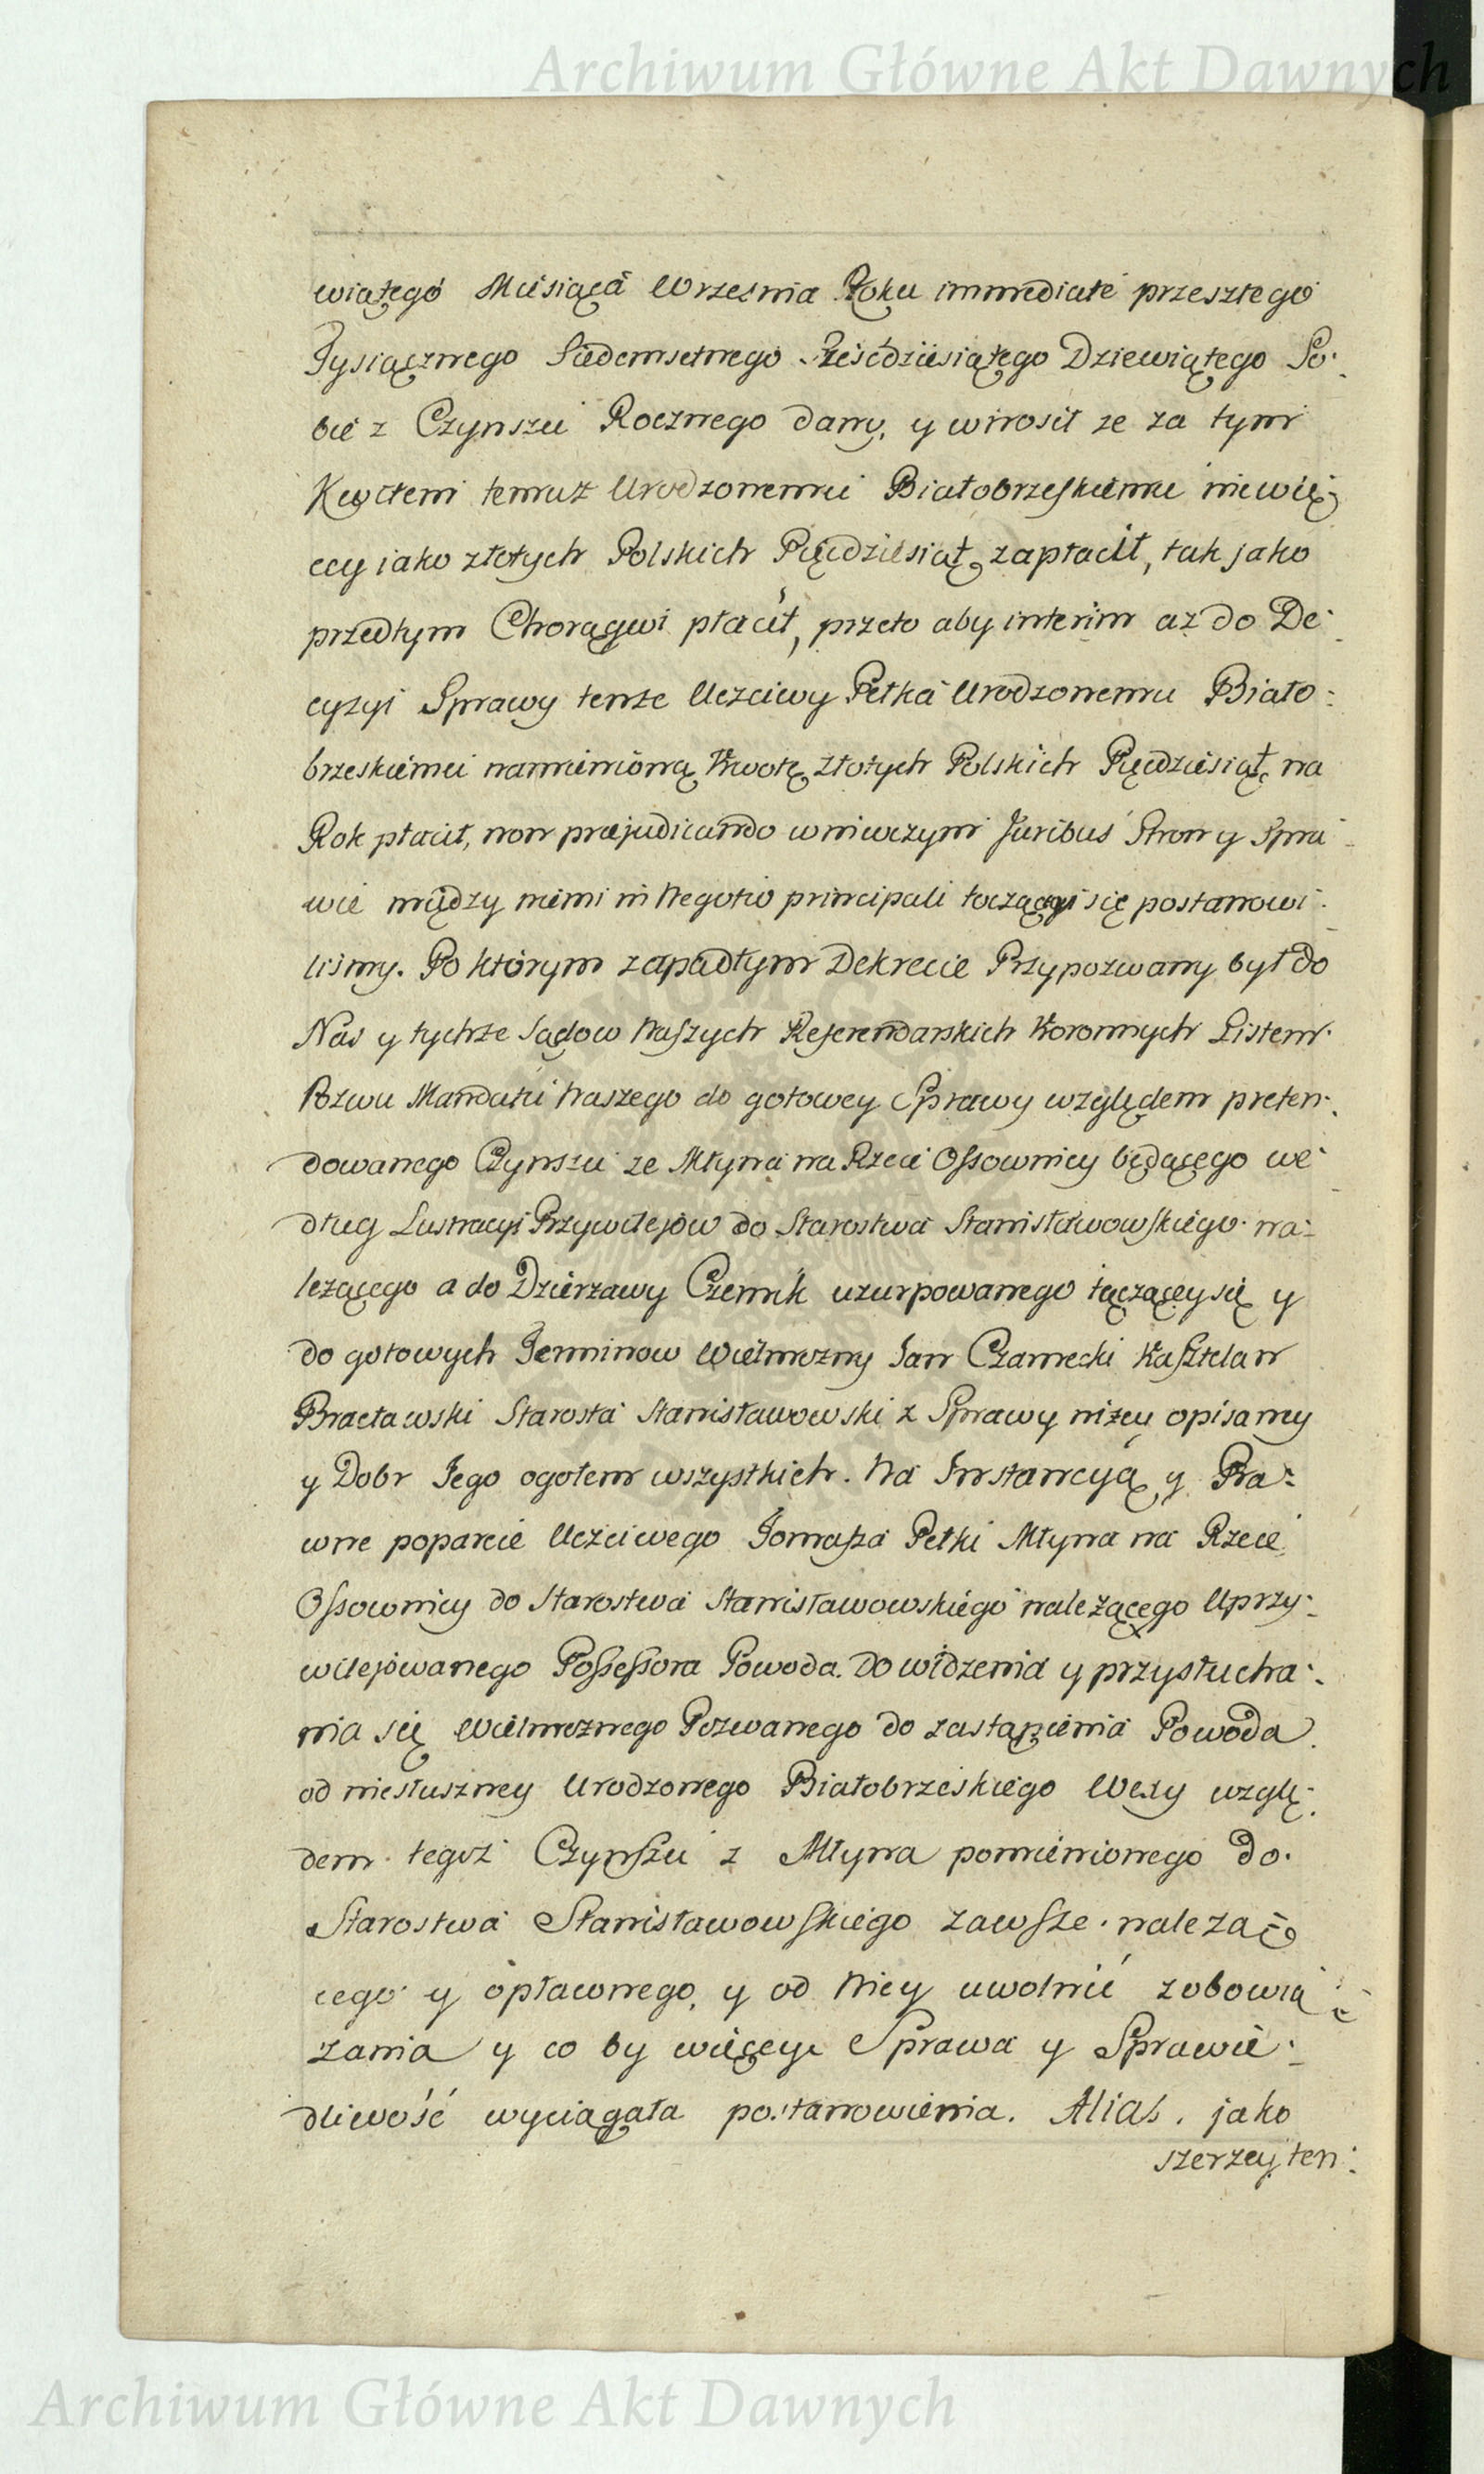 Archiwum Główne Akt Dawnych
wiątego Miesiąca Wrzesnia Roku immediate przeszłego
Tysiącznego Siedemsetnego Sześćdziesiątego Dziewiątego So:
bie z Czynszu Rocznego dany, y wnosił ze za tym
Kwitem temuz Urodzonemu Białobrzeskiemu niewię:
cey iako złotych Polskich Pięcdziesiąt zapłacił, tak jako
przedtym Chorągwi płacił, przeto aby interim az do De:
cyzyi Sprawy tenze Uczciwy Pełka Urodzonemu Biało:
brzeskiemu namienioną Kwotę złotych Polskich Pięcdziesiąt na
Rok płacił, non præjudicando wniwczym Juribus Stron y Spra:
wie między niemi in Negotio principali toczącey się postanowi:
lismy. Po którym zapadłym Dekrecie Przypozwany był do
Nas y tychze Sądow Naszych Referendarskich Koronnych Listem
Pozwu Mandatu Naszego do gotowey Sprawy względem preten:
dowanego Czynszu ze Młyna na Rzece Ossownicy będącego we:
dług Lustracyi Przywilejow do Starostwa Stanisławowskiego na:
lezącego a do Dzierzawy Czernik uzurpowanego toczącey się y
do gotowych Terminow Wielmozny Jan Czarnecki Kasztelan
Bracławski Starosta Stanisławowski z Sprawy nizey opisaney
y Dobr Jego ogołem wszystkich. Na Instancyą y Pra:
wne poparcie Uczciwego Tomasza Pełki Młyna na Rzece
Ossownicy do Starostwa Stanisławowskiego nalezącego Uprzy:
wilejowanego Possessora Powoda. Do widzenia y przysłucha:
nia się Wielmoznego Pozwanego do zastąpienia Powoda
od niesłuszney Urodzonego Białobrzeskiego Wexy wzglę:
dem tegoz Czynszu z Młyna pomienionego do
Starostwa Stanisławowskiego zawsze nalezą:
cego y opłaconego, y od Niey uwolnić zobowią:
zania y co by więcey Sprawa y Sprawie:
dliwość wyciągała postanowienia. Alias jako
szerzey ten:
Archiwum Główne Akt Dawnych